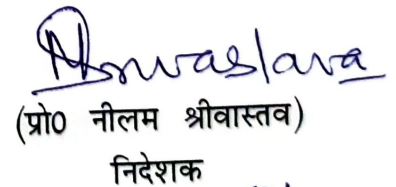 NSrivastava
(प्रो0 नीलम श्रीवास्तव)
निदेशक